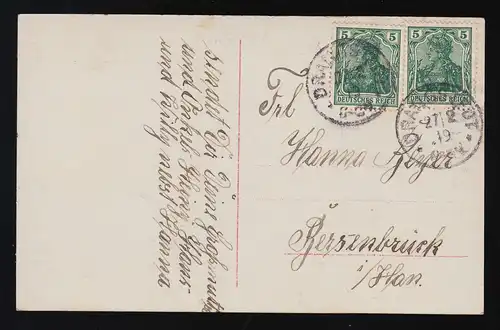 sendet Dir Deine Großmutter
und Onkel Heinz, Hans
und nebst Hanna
5 5 5 5
DEUTSCHES REICH DEUTSCHES REICH
27 2
19
Frl
Hanna Beyer
Bersenbrück
i/Han.